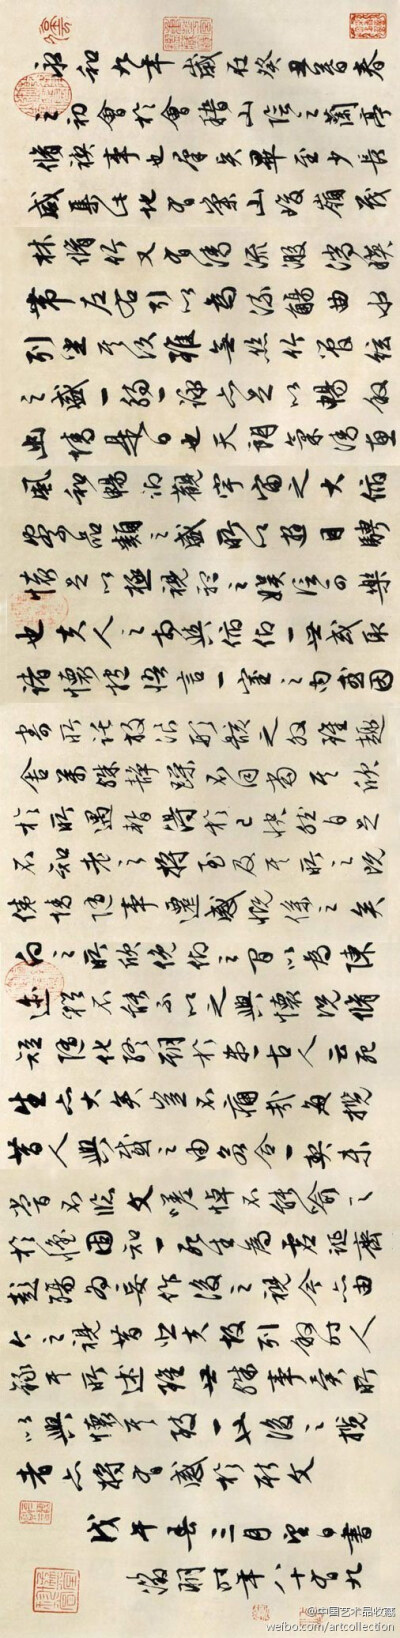 永和九年歲在癸丑暮春
之初會於會稽山陰之蘭亭
脩禊事也羣賢畢至少長
咸集此地有崇山峻嶺茂
林脩竹又有清流激湍暎
帶左右引以為流觴曲水
列坐其次雖無絲竹管絃
之盛一觴一詠亦足以暢敘
幽情是日也天朗氣清惠
風和暢仰觀宇宙之大俯
察品類之盛所以遊目騁
懷足以極視聽之娛信可樂
也夫人之相與俯仰一世或取
諸懷抱悟言一室之內或因
寄所託放浪形骸之外雖趣
舍萬殊靜躁不同當其欣
於所遇暫得於己快然自足
不知老之將至及其所之既
倦情隨事遷感慨係之矣
向之所欣俛仰之間以為陳
迹猶不能不以之興懷況脩
短隨化終期於盡古人云死
生亦大矣豈不痛哉每攬
昔人興感之由若合一契未
嘗不臨文嗟悼不能喻之
於懷固知一死生為虛誕齊
彭殤為妄作後之視今亦由
今之視昔悲夫故列敘時人
錄其所述雖世殊事異所
以興懷其致一也後之攬
者亦將有感於斯文
戊午春三月望日書
徵明時年八十有九
@中国艺术品收藏
weibo.com/artcollection